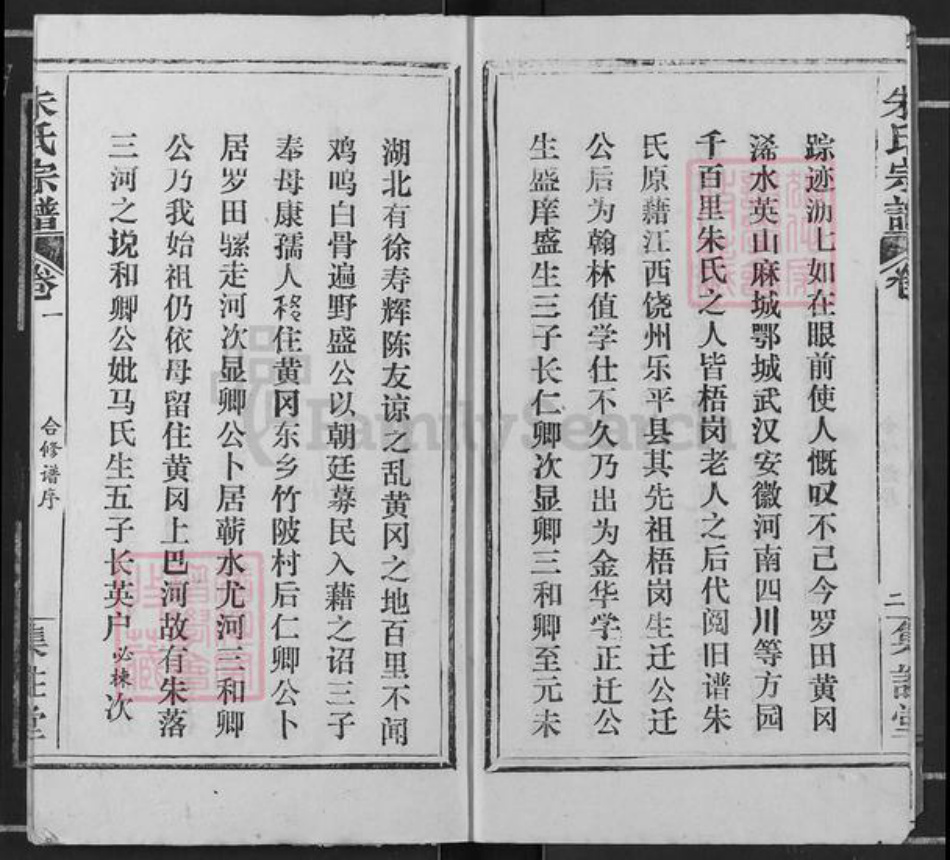 朱氏宗谱
卷
二
集
堂
踪迹沥七如在眼前使人慨叹不己今罗田黄冈
浠水英山麻城鄂城武汉安徽河南四川等方园
千百里朱氏之人皆梧岗老人之后代阅旧谱朱
氏原藉江西饶州乐平县其先祖梧岗生迁公迁
公后为翰林值学仕不久乃出为金华学正迁公
生盛庠盛生三子长仁卿次显卿三和卿至元未
湖北有徐寿辉陈友谅之乱黄冈之地百里不闻
鸡鸣白骨遍野盛公以朝廷募民入藉之诏三子
奉母康孺人移住黄冈东乡竹陂村后仁卿公卜
居罗田骡走河次显卿公卜居蕲水尤河三和卿
公乃我始祖仍依母留住黄冈上巴河故有朱落
三河之说和卿公妣马氏生五子长英户必栋次
朱氏宗谱
卷一
合修谱序
集
堂
FamilySearch